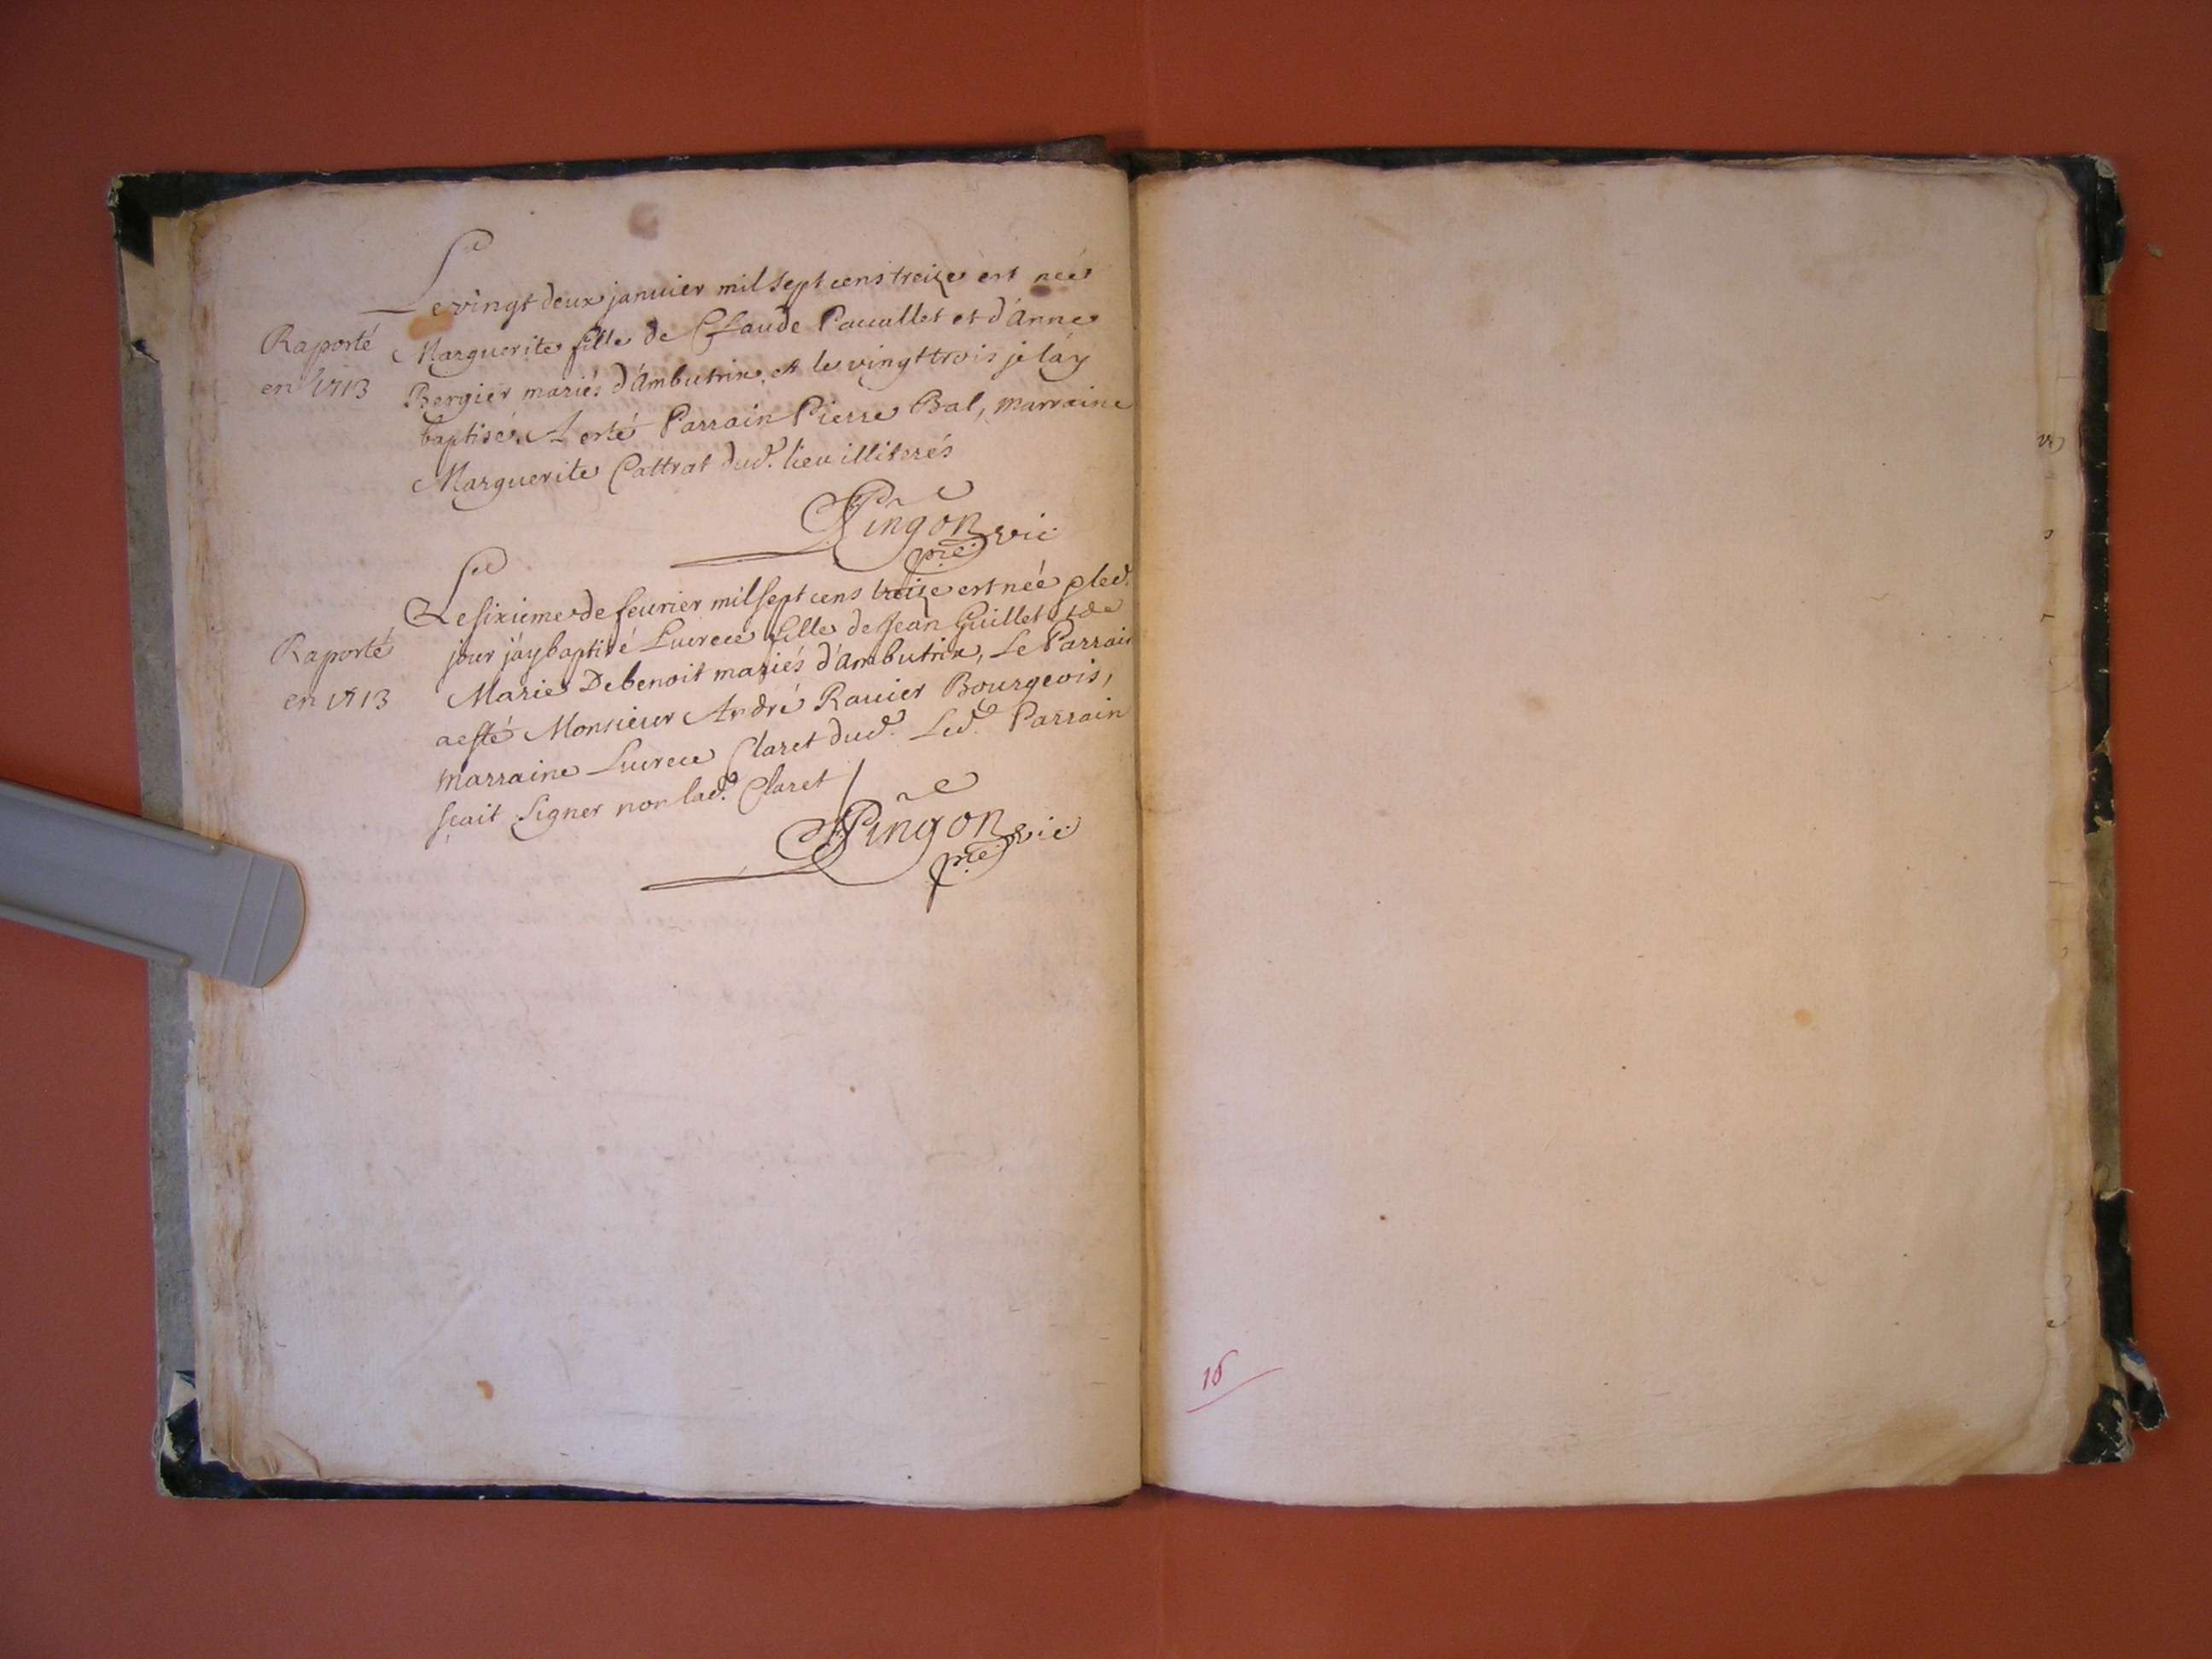 Le vingt deux januier mil sept cens treize est née
Raporté
en 1713
Marguerite fille de Claude Pauallet et d'Anne
Bergier mariés d'Ambutrix, et le vingt trois je l'ay
baptisé. A esté Parrain Pierre Bal, marraine
Marguerite Cattrat dud. lieu illiterés
Pingon
pre vic
Le sixieme de feurier mil sept cens treize est née & led.
Raporté
en 1713
jour j'ay baptisé Lucrece fille de Jean Guillet et de
Marie Debenoit mariés d'Ambutrix, Le Parrain
a esté Monsieur André Rauier Bourgeois,
marraine Lucrece Claret dud. Led. Parrain
sçait signer non lad. Claret
Pingon
pre vic
16